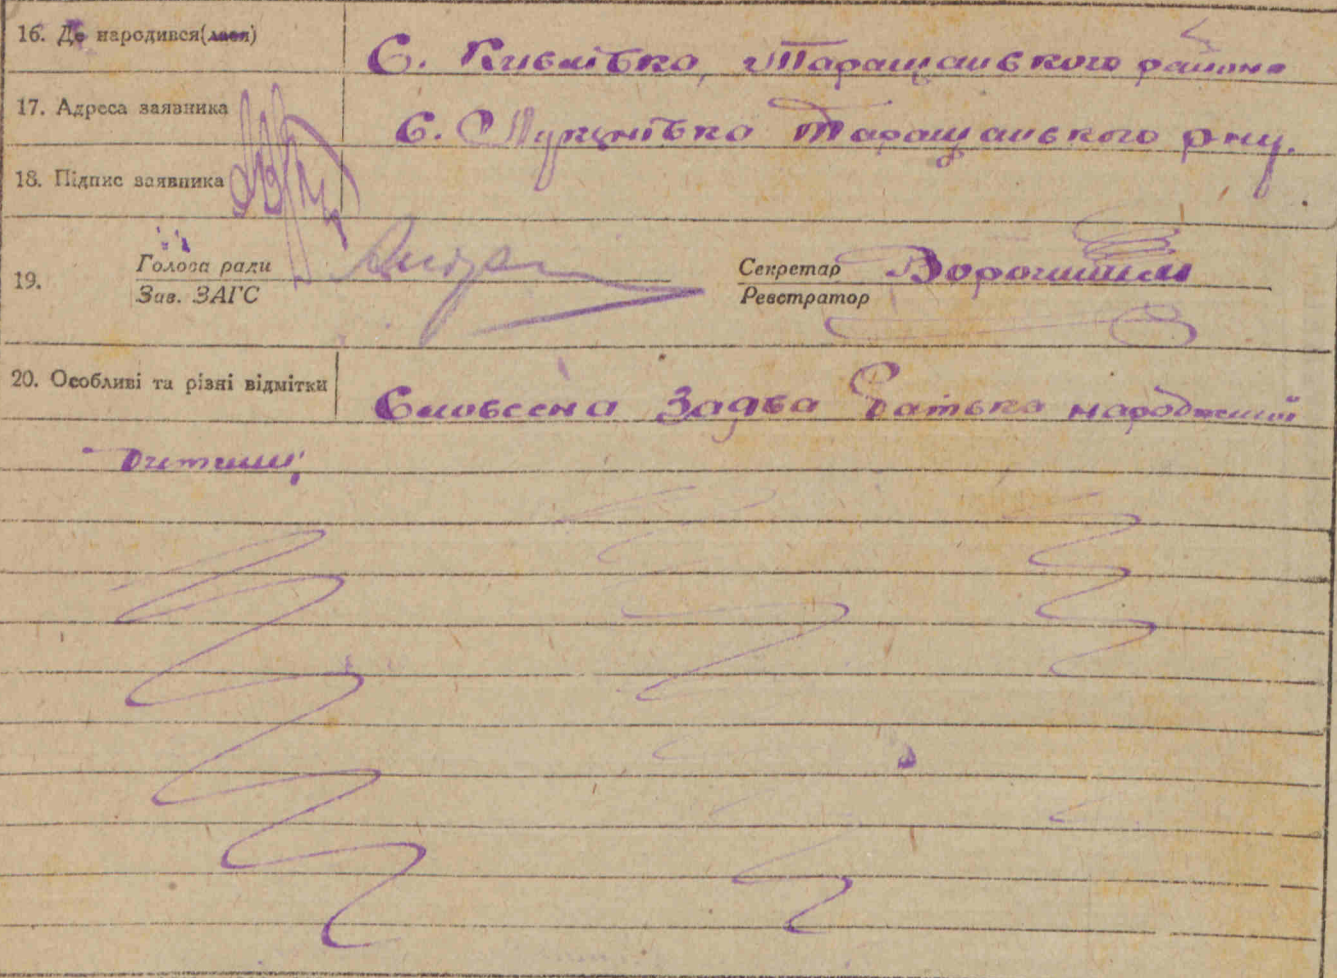 16. Де народився(лася) С. Кившівка, Таращанського района
17. Адреса заявника С. Лук'янівка Таращанського р-ну.
18. Підпис заявника
19. Голова ради Секретар
Зав. ЗАГС Реєстратор
20. Особливі та різні відмітки Словесна Задва батька народженої
дитини